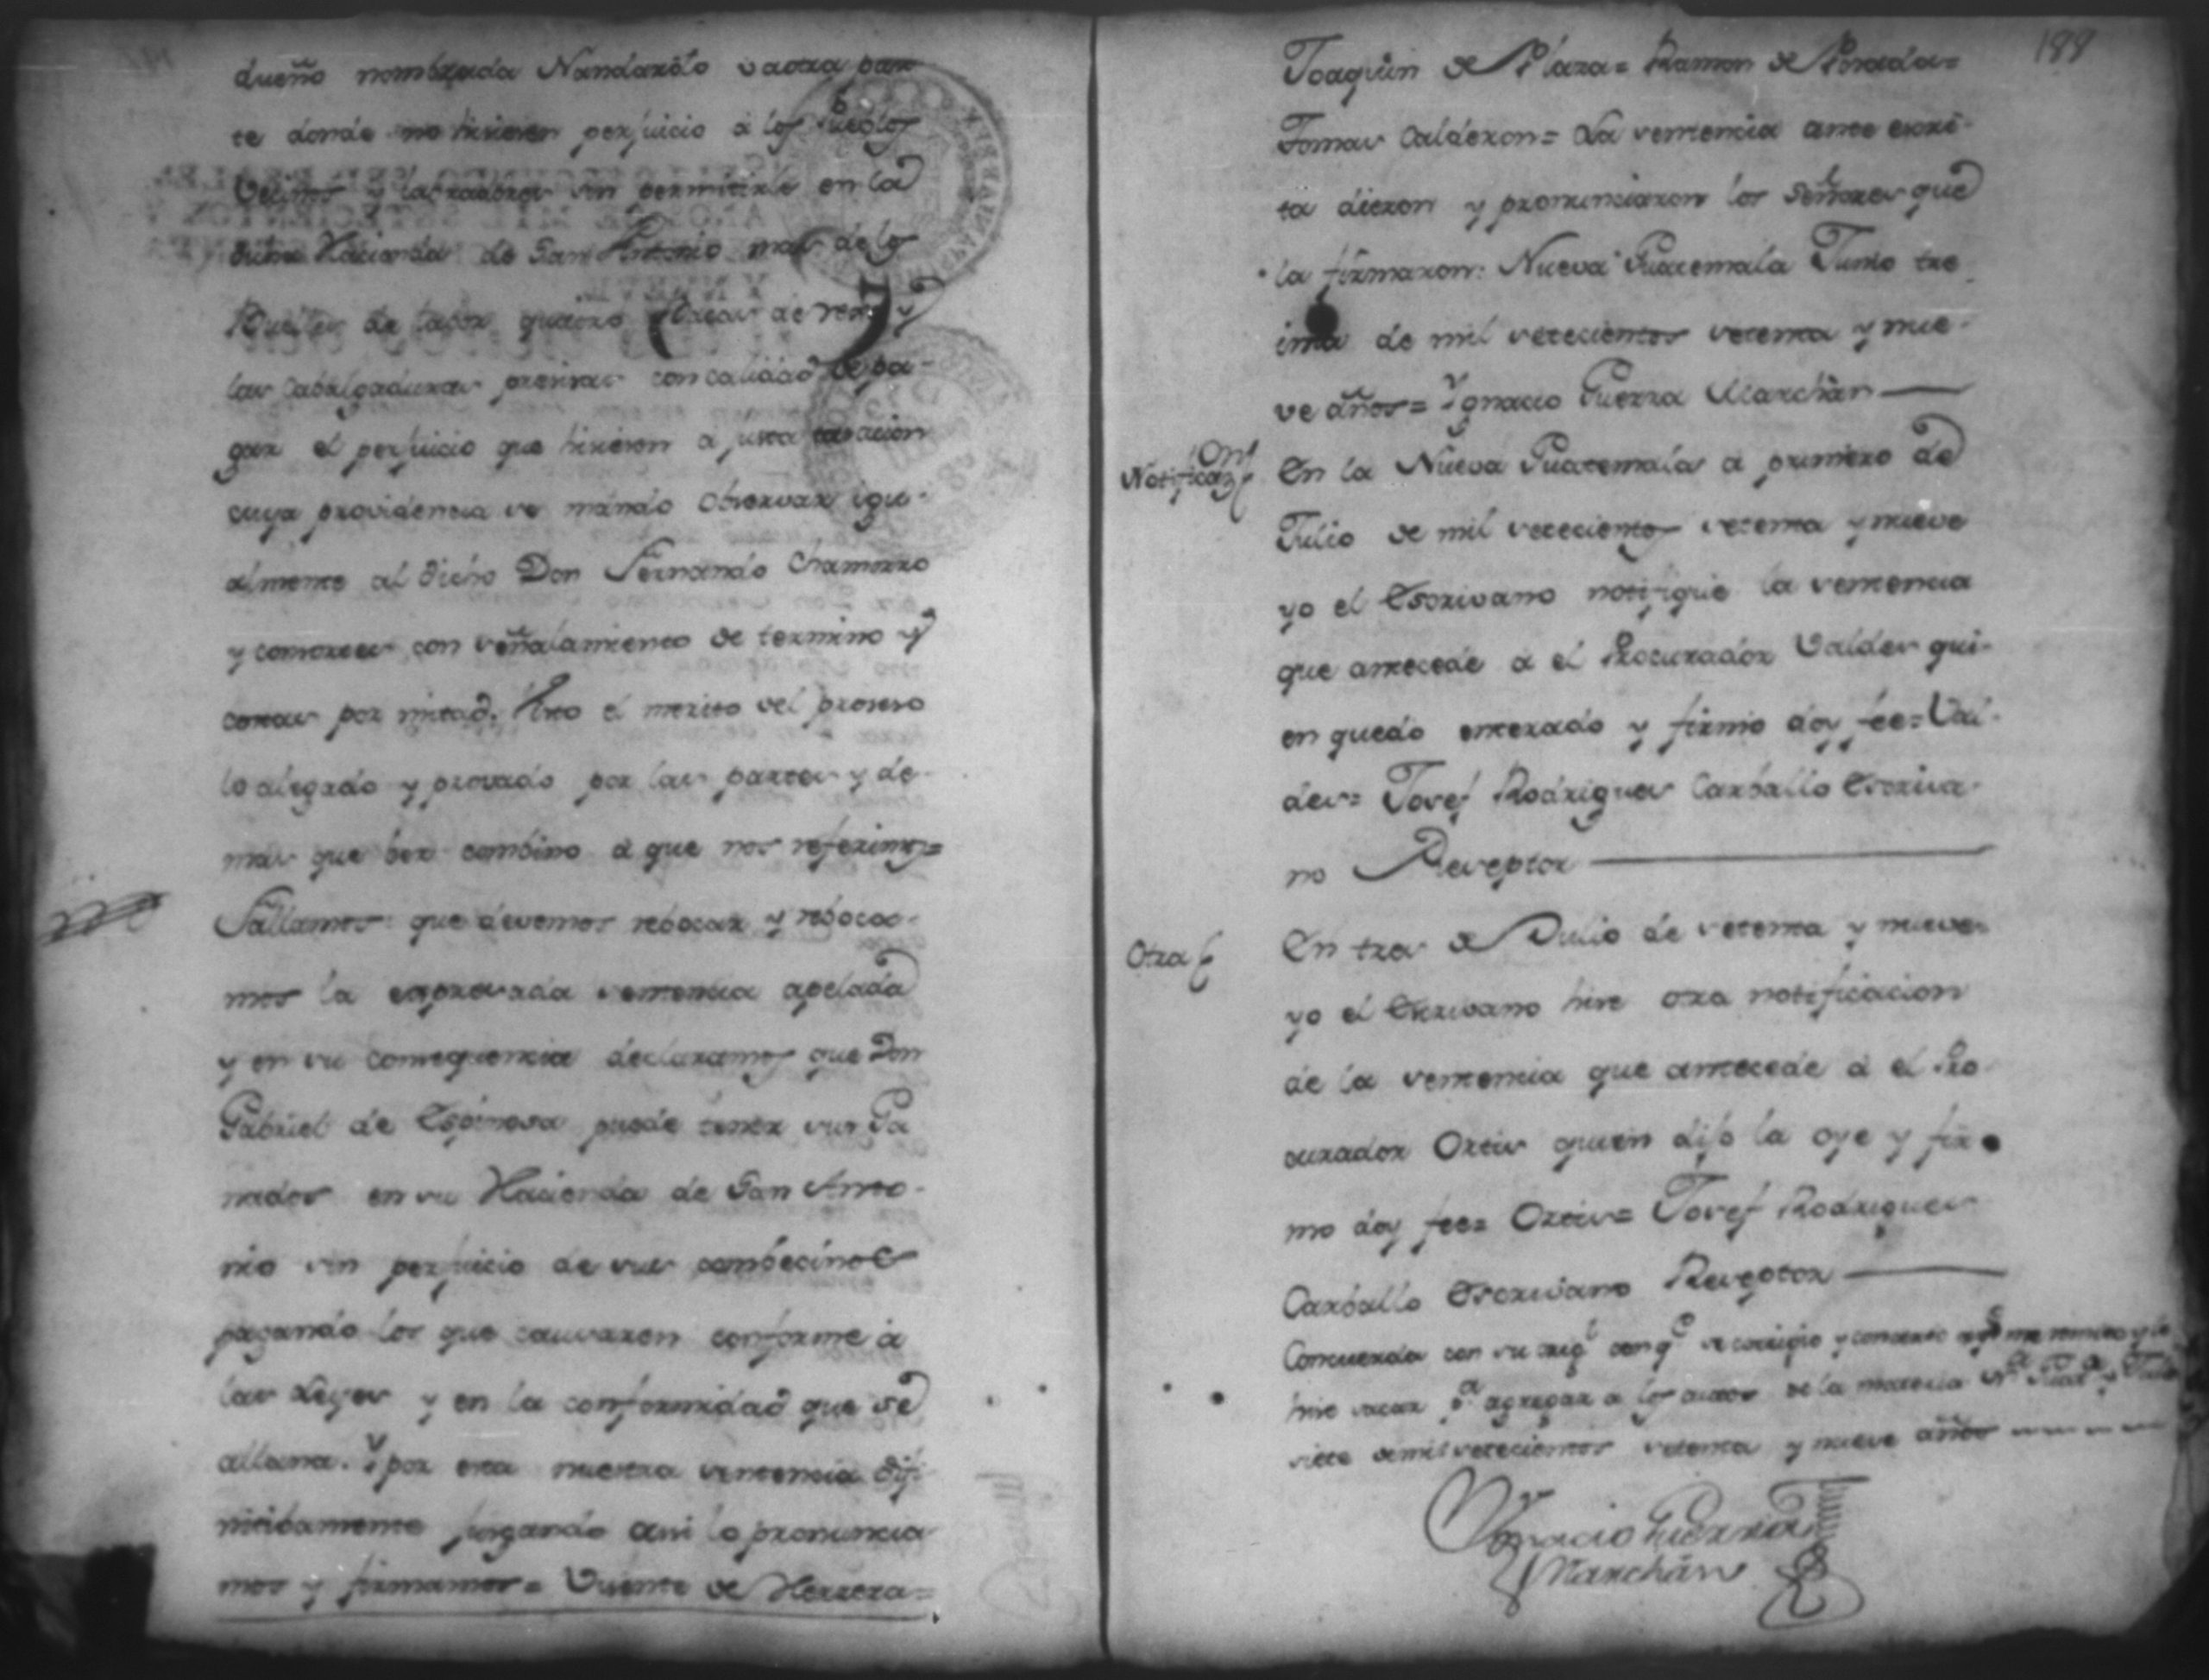 dueño nombrada Nandarólo u aotra par
te donde no hisiesen perjuicio á los Pueblos
Vecinos y labradores sin permitirle en la
dicha Hacienda de San Antonio mas de los
Bueyes de labor quatro Bacas de reso y
las cabalgaduras presisas con calidad de pa-
gar el perjuicio que hisiesen a justa tasacion
cuya providencia se mandó observar igu-
almente al dicho Don Fernando Chamorro
y consortes con señalamiento de termino y
costas por mitad. Visto el merito del proseso
lo alegado y provado por las partes y de-
mas que ber combino á que nos referimos=
Fallamos que devemos rebocar y reboca-
mos la expresada sentencia apelada
y en su consequencia declaramos que Don
Gabriel de Espinosa puede tener sus Ga
nados en su Hacienda de San Anto-
nio sin perjuicio de sus combecinos
pagando los que causaren conforme á
las Leyes y en la conformidad que se
allana. Y por esta nuestra sentencia difi-
nitibamente jusgando assi lo pronuncia
mos y firmamos= Vicente de Herrera=
188
Joaquin de Plaza= Ramon de Posada=
Tomas Calderon= La sentencia ante escri-
ta dieron y pronunciaron los Señores que
la firmaron: Nueva Guatemala Junio tre
inta de mil setecientos setenta y nue-
ve años= Ygnacio Guerra Marchán
Notificaz.on
En la Nueva Guatemala á primero de
Julio de mil setecientos setenta y nueve
yo el Escrivano notifiqué la sentencia
que antecede á el Procurador Valdes qui-
en quedó enterado y firmó doy fee= Val-
des= Josef Rodrigues Carballo Escriva-
no Reseptor
Otra
En tres de Julio de setenta y nueve
yo el Escrivano hise otra notificacion
de la sentencia que antecede á el Pro
curador Ortis quien dijo la oye y fir
mo doy fee= Ortis= Josef Rodrigues
Carballo Escrivano Reseptor
Concuerda con su orig.l con q.e se corrigio y concerto
hise sacar p.a agregar a los autos de la materia
siete de mil setecientos setenta y nueve años
Ygnacio Guerra
Marchán